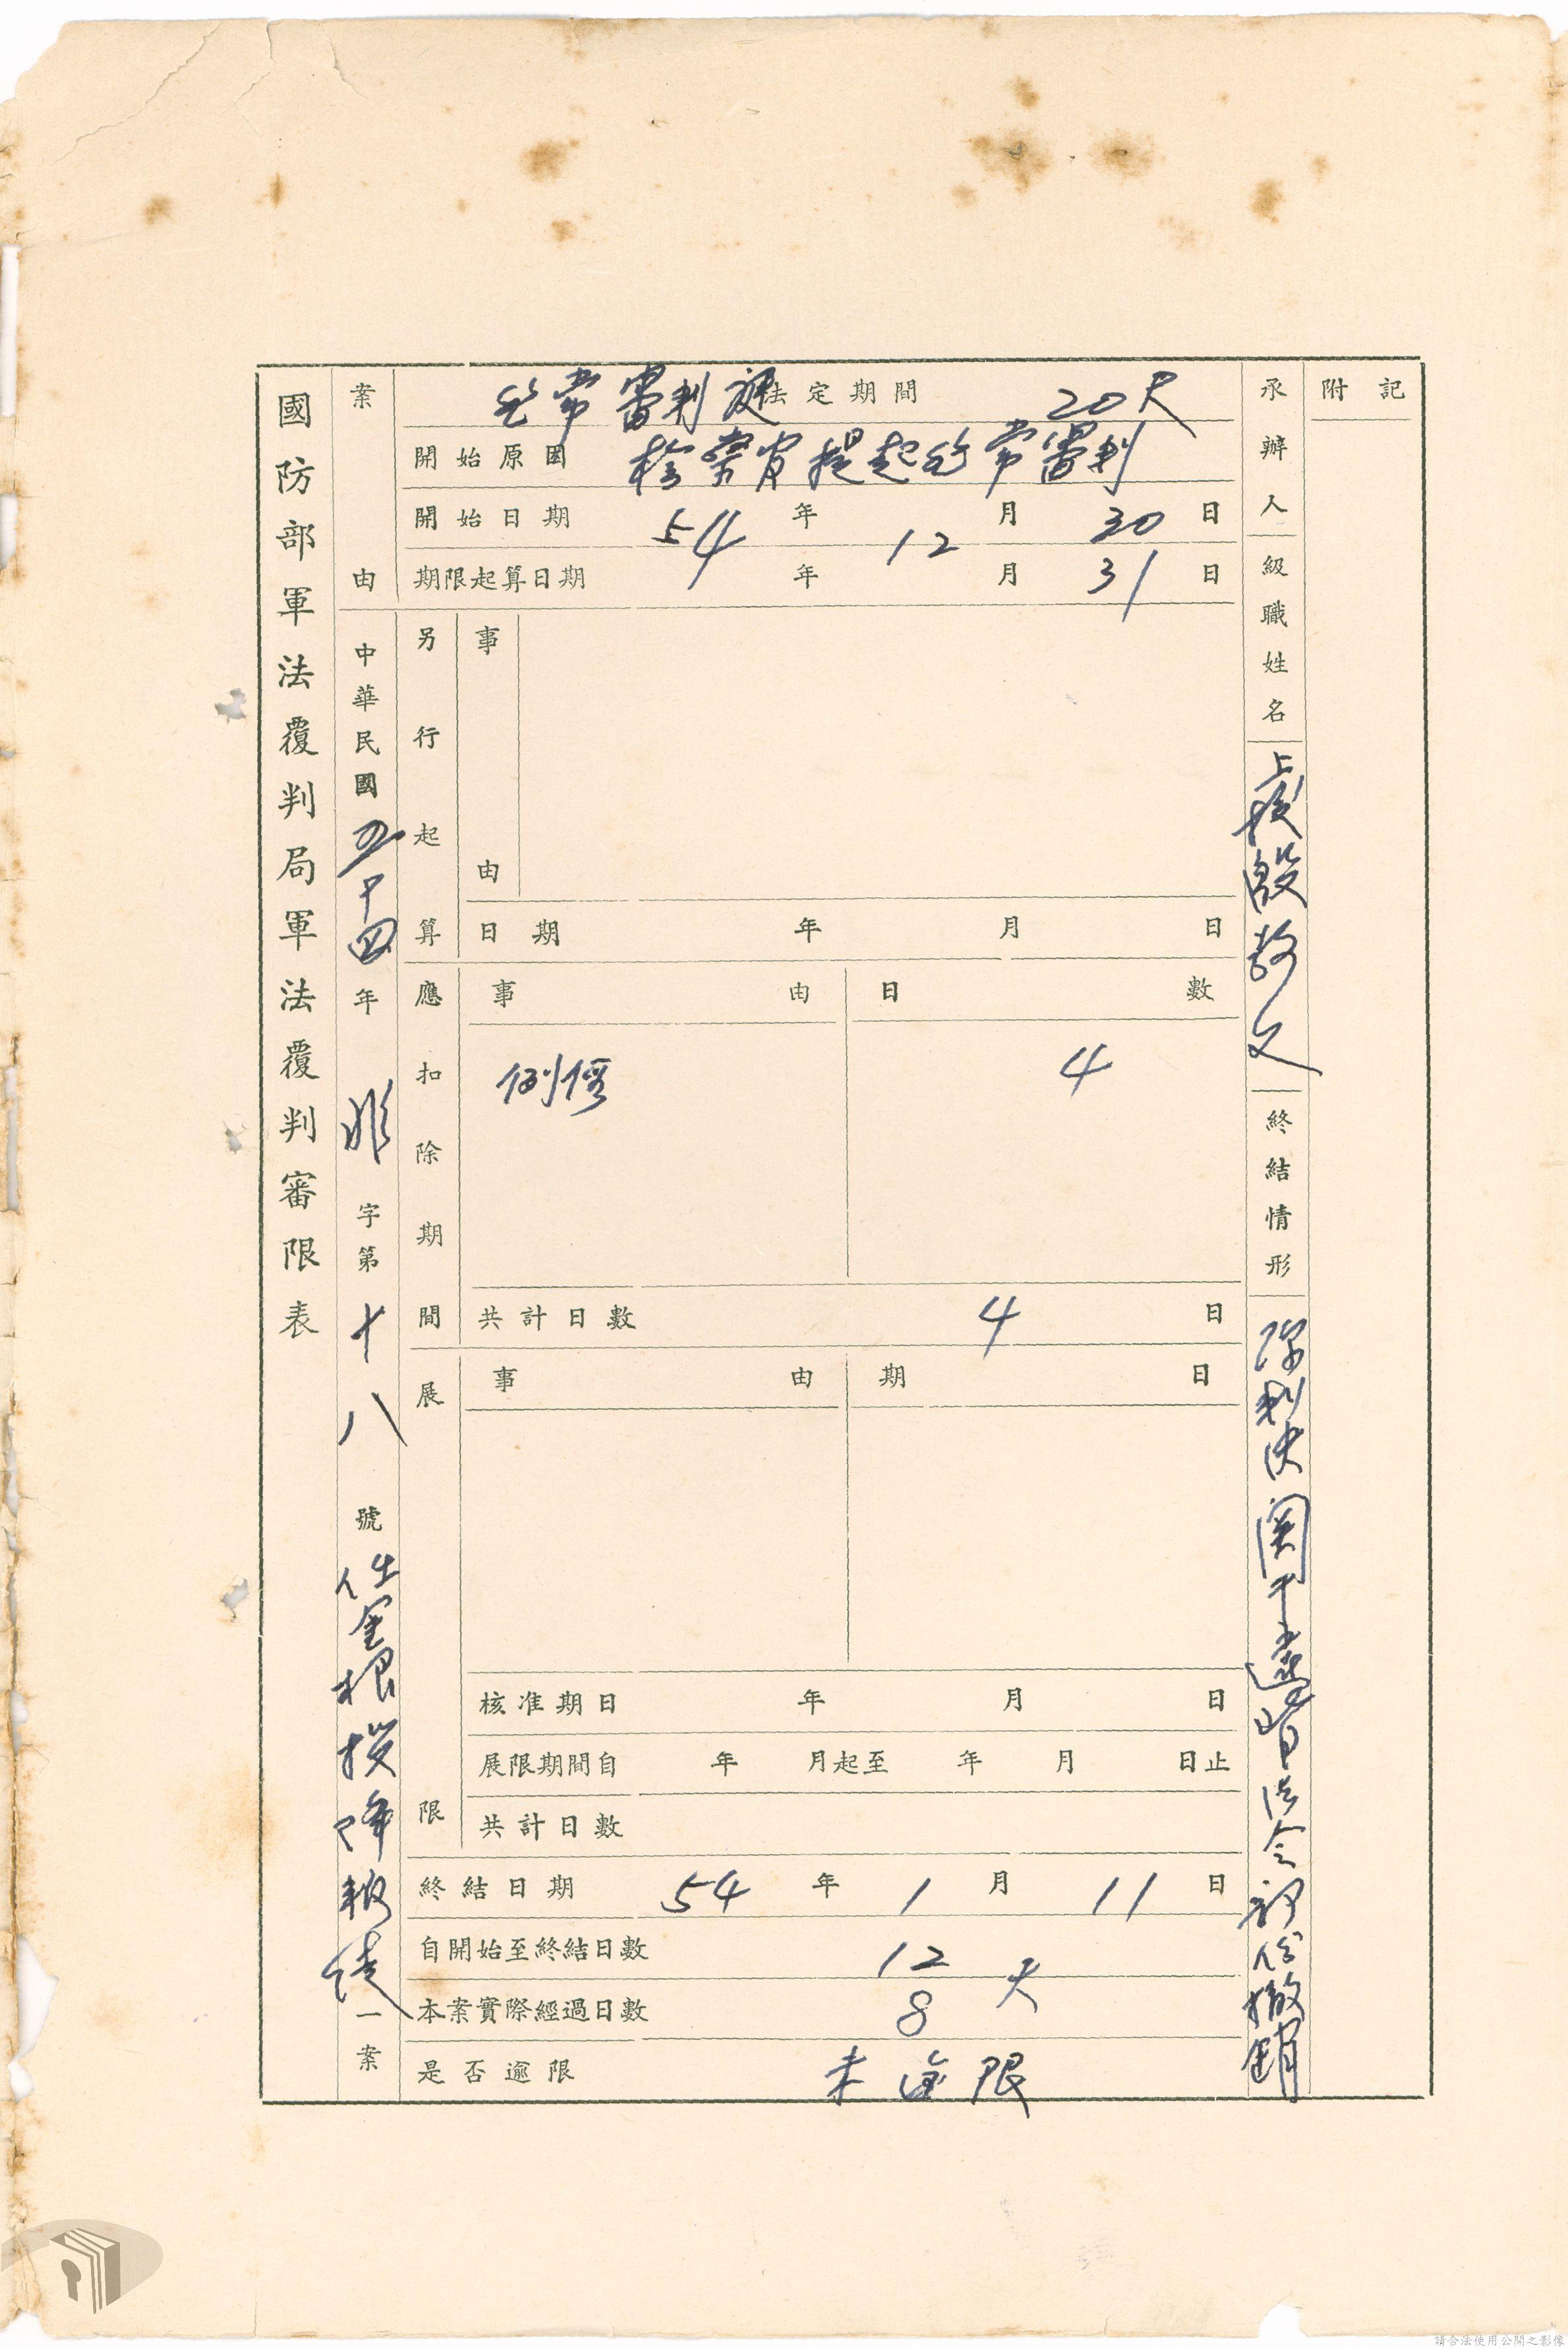 國防部軍法覆判局軍法覆判審限表
中華民國五十四年 非 字第十八號任金根投降叛徒一案
案由
非常審判 法定期間 20天
開始原因 檢察官提起非常審判
開始日期 54年12月30日
期限起算日期 年 月31日
另行起算
事由
日期 年 月 日
應扣除期間
事由 日數
例假 4
共計日數 4 日
展限
事由 期日
核准期日 年 月 日
展限期間自 年 月起至 年 月 日止
共計日數
終結日期 54年1月11日
自開始至終結日數 12天
本案實際經過日數 8
是否逾限 未逾限
承辦人級職姓名 上校殷敬文
終結情形 原判決關于違背法令部份撤銷
附記
請合法使用公開之影像